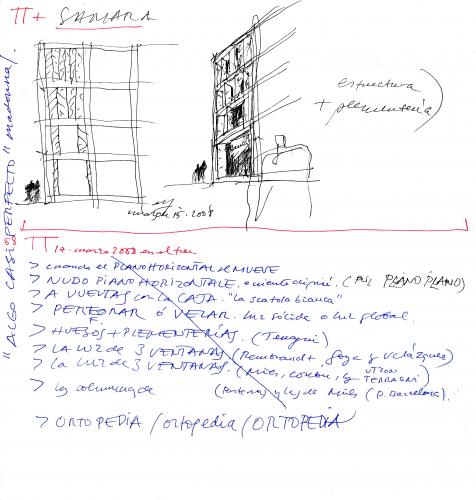 π + SAMARA
"ALGO CASI PERFECTO" madonna/.
estructura
+ plementeria
15 · 2008
π 17 · marzo 2008 en el tren
> cuando el PLANO HORIZONTAL SE MUEVE
> NUDO PIANO HORIZONTALE. (PLANO PLANO)
> A VUELTAS con la CAJA. "la scatola bianca"
> PERFORAR ó VELAR. luz sólida o luz global.
> HUESOS + PLEMENTERÍAS. (Terragni)
> LA LUZ de 3 VENTANAS (Rembrandt, Goya y Velázquez)
> la LUZ de 3 VENTANAS. (Mies, Corbu, y UTZON TERRAGNI)
> las columnas de (Partenon) y las de Mies (P. Barcelona).
> ORTOPEDIA / ortopedia / ORTOPEDIA